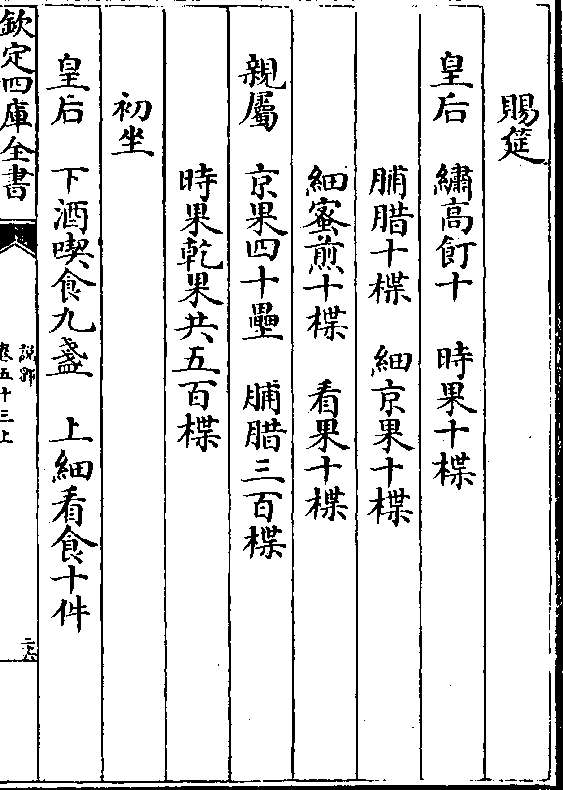 賜筵
皇后　繡高飣十　時果十楪
脯腊十楪　細京果十楪
細蜜煎十楪　看果十楪
親屬　京果四十壘　脯腊三百楪
時果乾果共五百楪
初坐
皇后　下酒喫食九盞　上細看食十件
欽定四庫全書
說郛
卷五十三上
二六